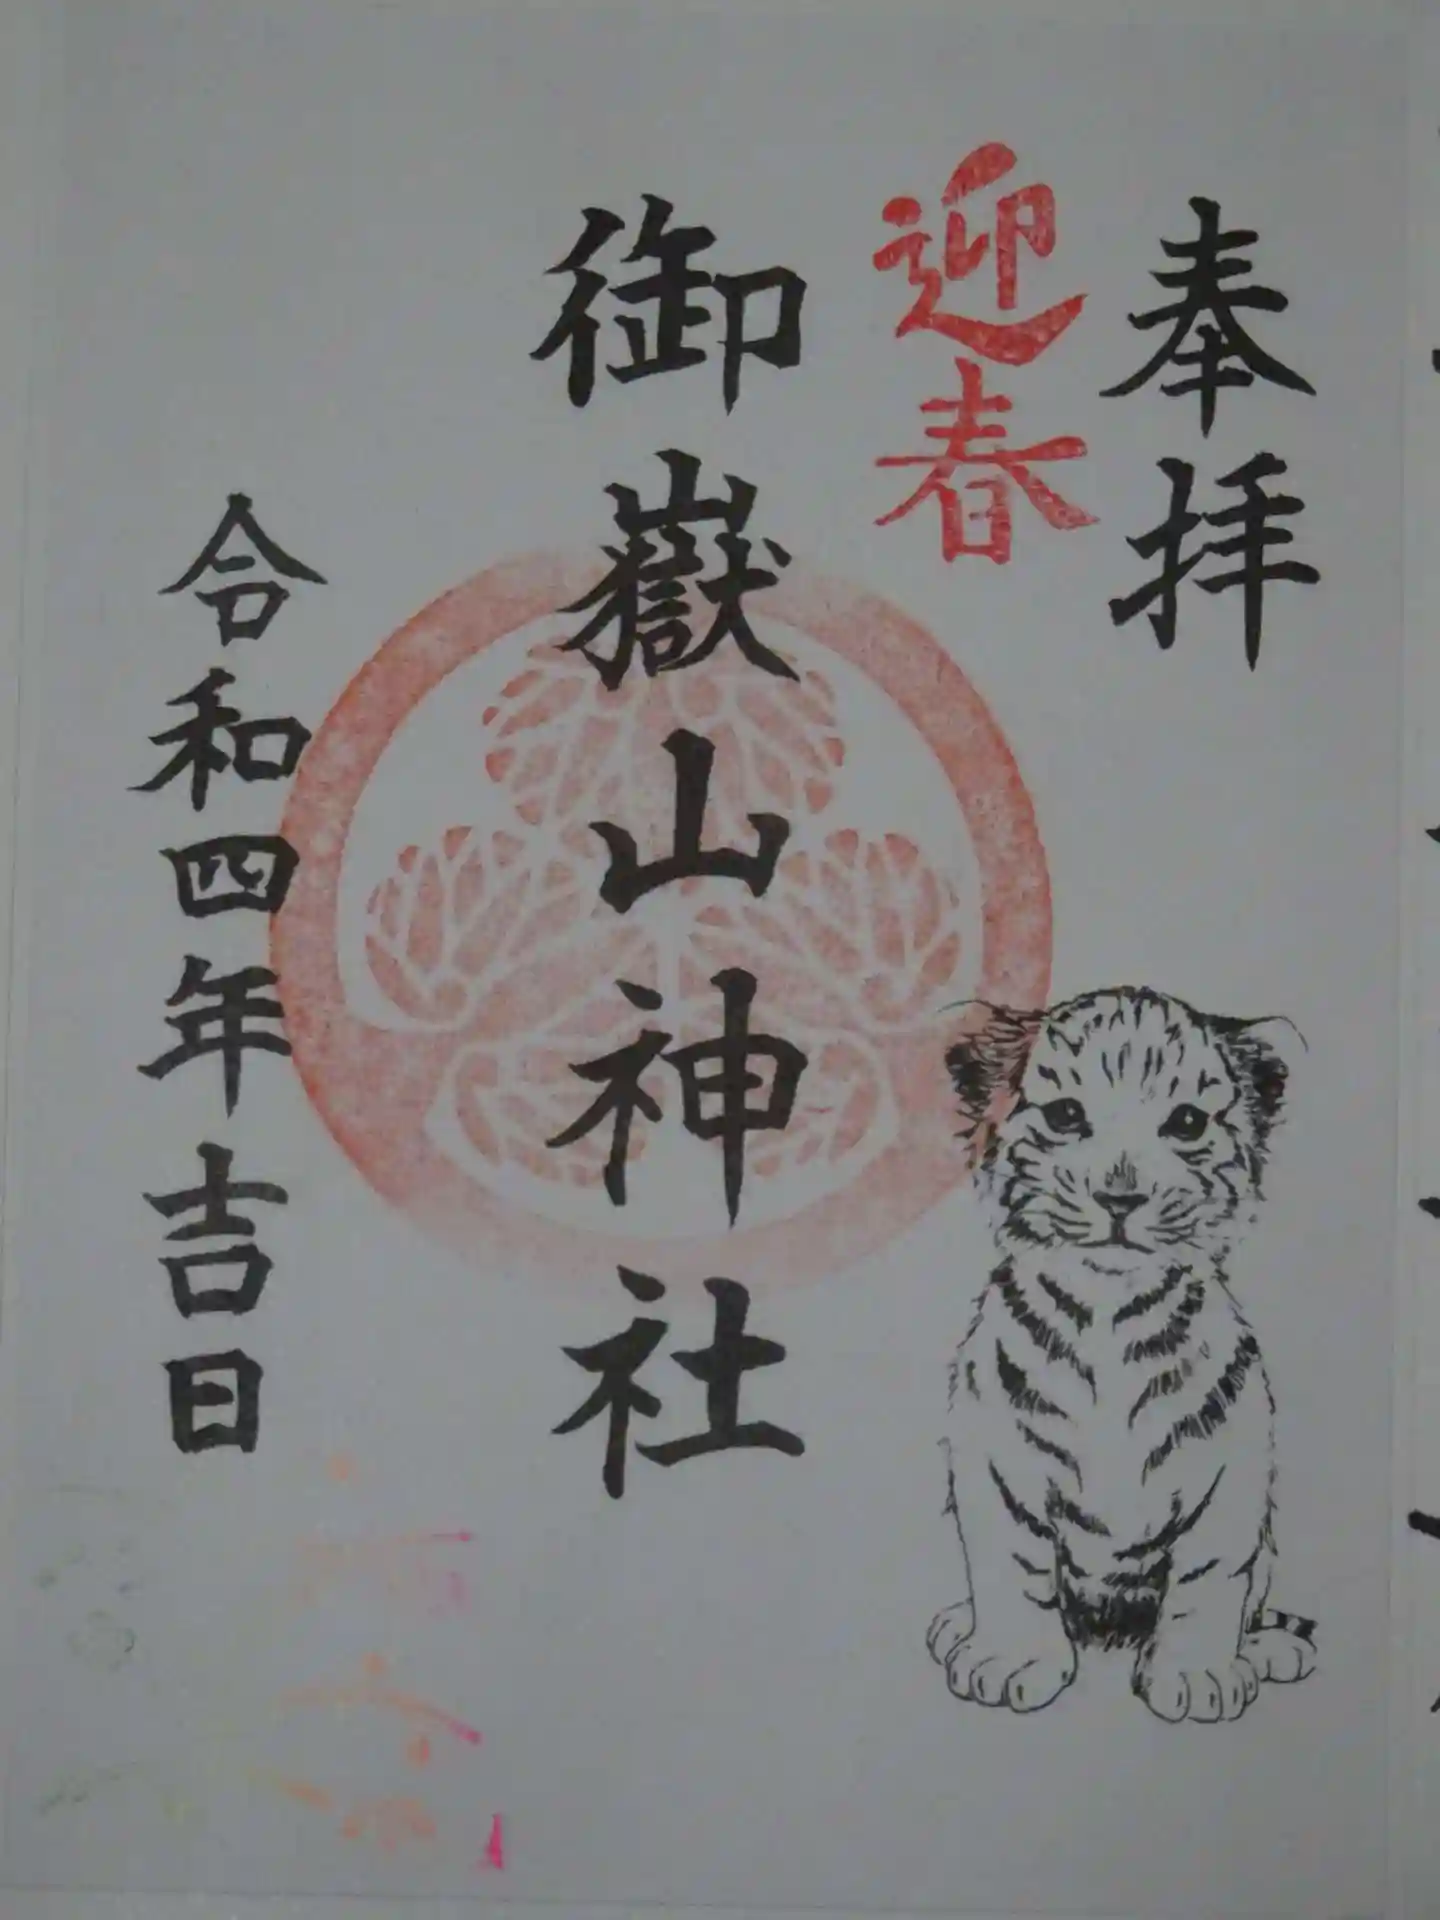 奉拝
迎春
御嶽山神社
令和四年吉日